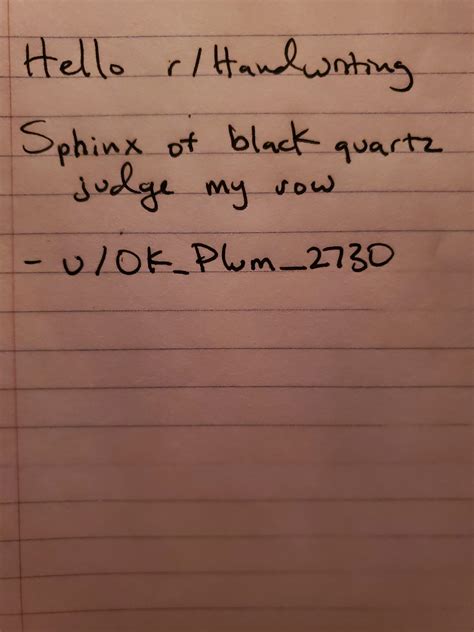 Hello r/Handwriting
Sphinx of black quartz
judge my vow
- u/OK_Plum_2730